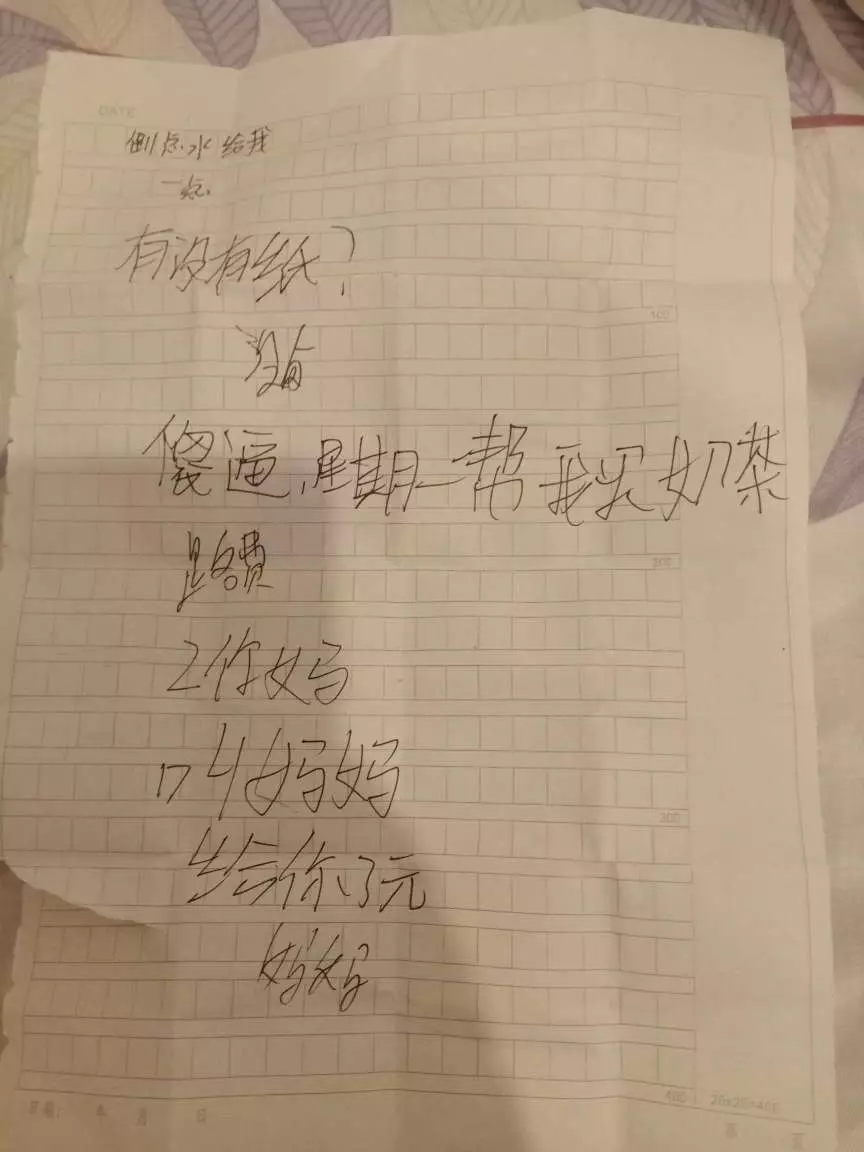 DATE
倒点水给我
一点
有没有纸?
没有
傻逼,星期一帮我买奶茶
路费
2你妈
叫妈妈
给你3元
妈妈
100
200
300
400
20x20=400
日期: 年 月 日
第 页